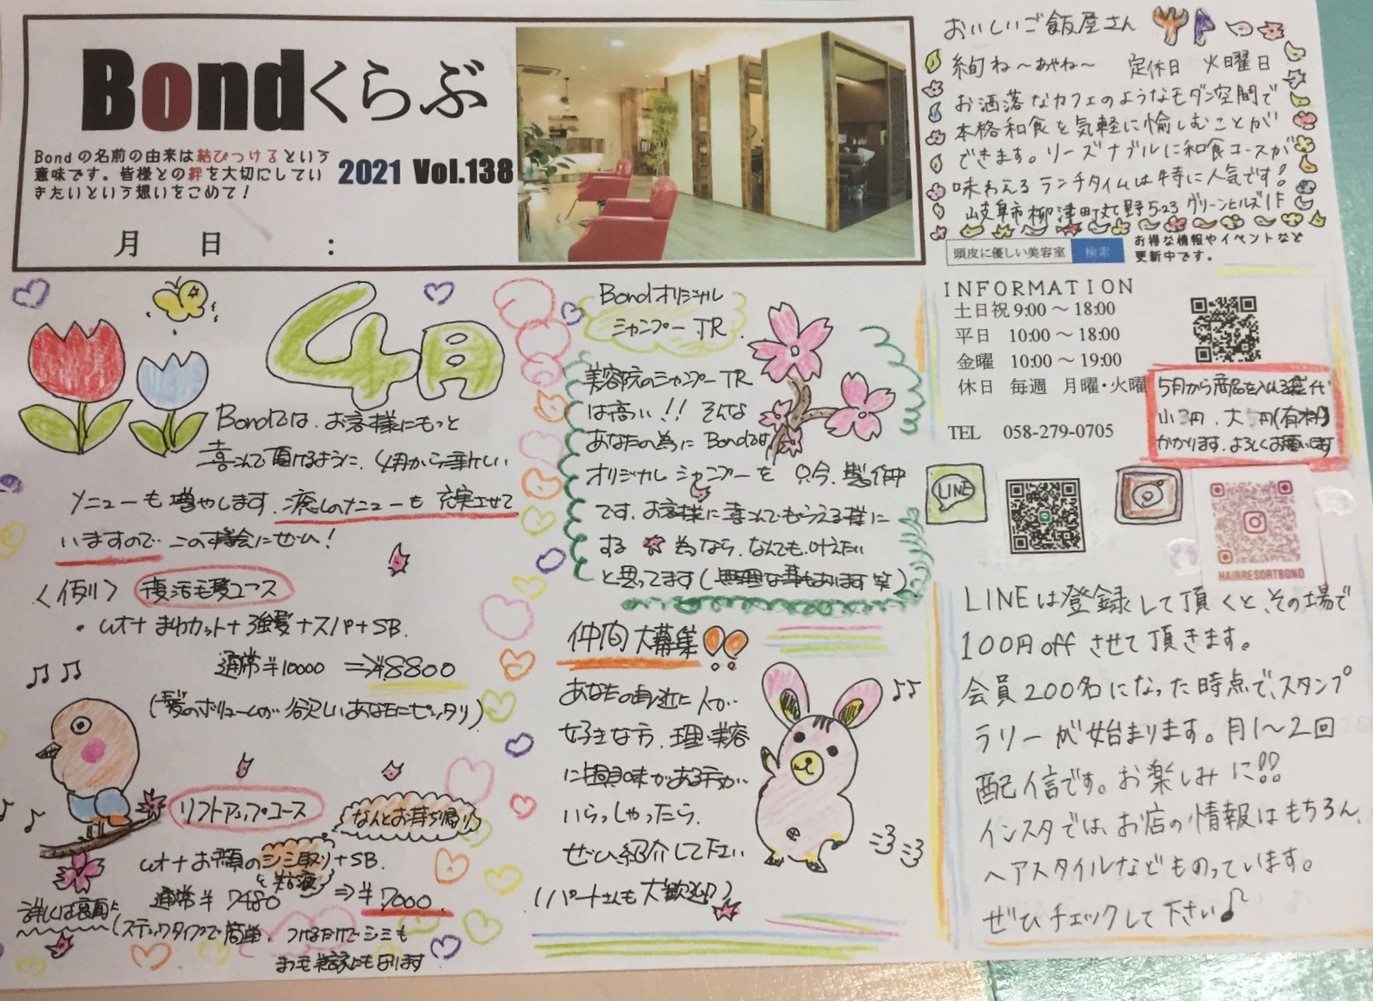 Bondくらぶ
Bondの名前の由来は結びつけるという
意味です。皆様との絆を大切にしてい
きたいという想いをこめて！
2021 Vol.138
月 日 :
おいしいご飯屋さん
絢ね〜あやね〜 定休日 火曜日
お洒落なカフェのようなモダン空間で
本格和食を気軽に愉しむことが
できます。リーズナブルに和食コースが
味わえるランチタイムは特に人気です!
岐阜市柳津町丸野5-23 グリーンヒルズ1F
頭皮に優しい美容室 検索
お得な情報やイベントなど
更新中です。
INFORMATION
土日祝 9:00 〜 18:00
平日 10:00 〜 18:00
金曜 10:00 〜 19:00
休日 毎週 月曜・火曜
TEL 058-279-0705
5月から商品を入れる袋代
小3円、大5円(有料)
かかります。よろしくお願いします
LINE
HAIRRESORTBOND
LINEは登録して頂くと、その場で
100円offさせて頂きます。
会員200名になった時点で、スタンプ
ラリーが始まります。月1〜2回
配信です。お楽しみに!!
インスタでは、お店の情報はもちろん、
ヘアスタイルなどものっています。
ぜひチェックして下さい♪
4月
Bondでは、お客様にもっと
喜んで頂けるように、4月から新しい
メニューも増やします。癒しのメニューも充実させて
いますので この機会にぜひ!
〈例〉 復活毛髪コース
・ + まゆカット + 強髪 + スパ + SB.
通常¥10000 ⇒ ¥8800
(髪のボリュームが欲しいあなたにピッタリ)
リフトアップコース
なんとお持ち帰り
+ お顔のシミ取り + SB.
通常¥7480 ⇒ ¥7000
詳しくは裏面に
(スティックタイプで簡単、つけるだけでシミも
Bondオリジナル
シャンプーTR
美容院のシャンプーTR
は高い!! そんな
あなたの為にBondでは
オリジナルシャンプーを只今、製作中
です。お客様に喜んでもらえる様に
する為なら、なんでも叶えたい
と思ってます(無理な事もあります 笑)
仲間大募集!!
あなたの身近に人が
好きな方、理・美容
に興味がある方が
いらっしゃったら、
ぜひ紹介して下さい
(パートさんも大歓迎!!)